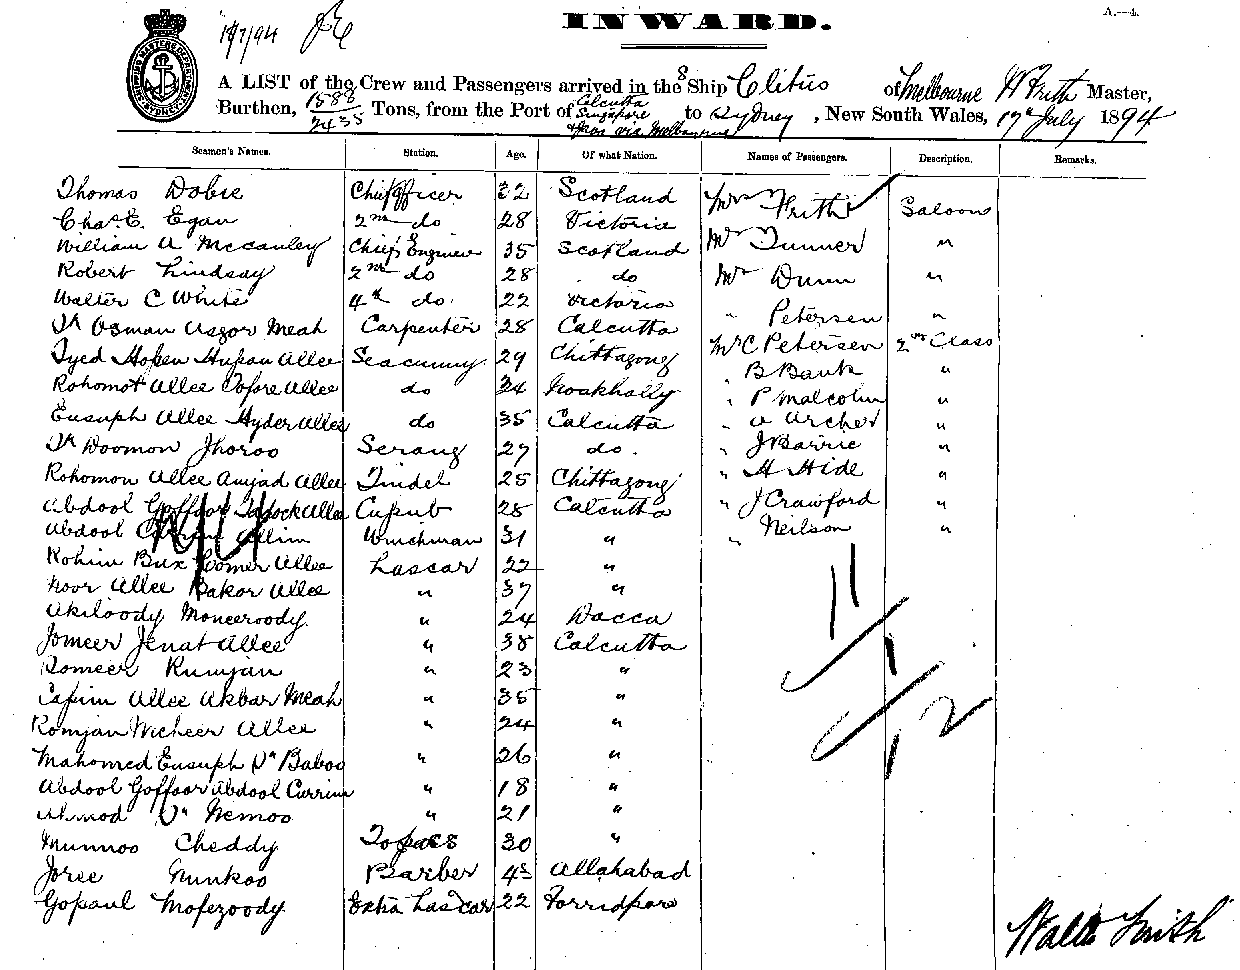 18/7/94
INWARD.
A.—4.
A LIST of the Crew and Passengers arrived in the S Ship Clitus of Melbourne W Frith Master,
Burthen, 1588 / 2435 Tons, from the Port of Calcutta Singapore & Java via Melbourne to Sydney, New South Wales, 17th July 1894
Seamen's Names. Station. Age. Of what Nation. Names of Passengers. Description. Remarks.
Thomas Dobie Chief Officer 32 Scotland Mrs Frith Saloon
Chas. E. Egan 2nd do 28 Victoria
William A McCauley Chief Engineer 35 Scotland Mr Turner "
Robert Lindsay 2nd do 28 do Mr Dunn "
Walter C White 4th do. 22 Victoria " Petersen "
Osman Asgor Meah Carpenter 28 Calcutta Mr C Petersen 2nd Class
Hupan Allee Seacunny 29 Chittagong " B Bank "
Rohomot Allee Tofore Allee do 34 Noakhally " P Malcolm "
Eusuph Allee Hyder Allee do 35 Calcutta " A Archer "
Doomon Jhoroo Serang 27 do. " J Barrie "
Rohomon Allee Amjad Allee Tindel 25 Chittagong " H Hide "
Abdool Goffoor Allee 28 Calcutta " J Crawford "
Abdool Allim Winchman 31 " " Neilson "
Rohim Bux Oomer Allee Lascar 22 "
Noor Allee Bakor Allee " 37 "
Akiloody Moneeroody " 24 Dacca
Jomeer Jenat Allee " 38 Calcutta
Romeer Rumjan " 23 "
Allee Akbar Meah " 35 "
Romjan Wicheer Allee " 24 "
Mahomed Eusuph Baboo " 26 "
Abdool Goffoor Abdool Currim " 18 "
Ahmod Nemoo " 21 "
Munnoo Cheddy Topass 30 "
Joree Nunkoo Barber 43 Allahabad
Gopaul Mofezoody Extra Lascar 22 Forridpore
11
1
12
Walter Frith